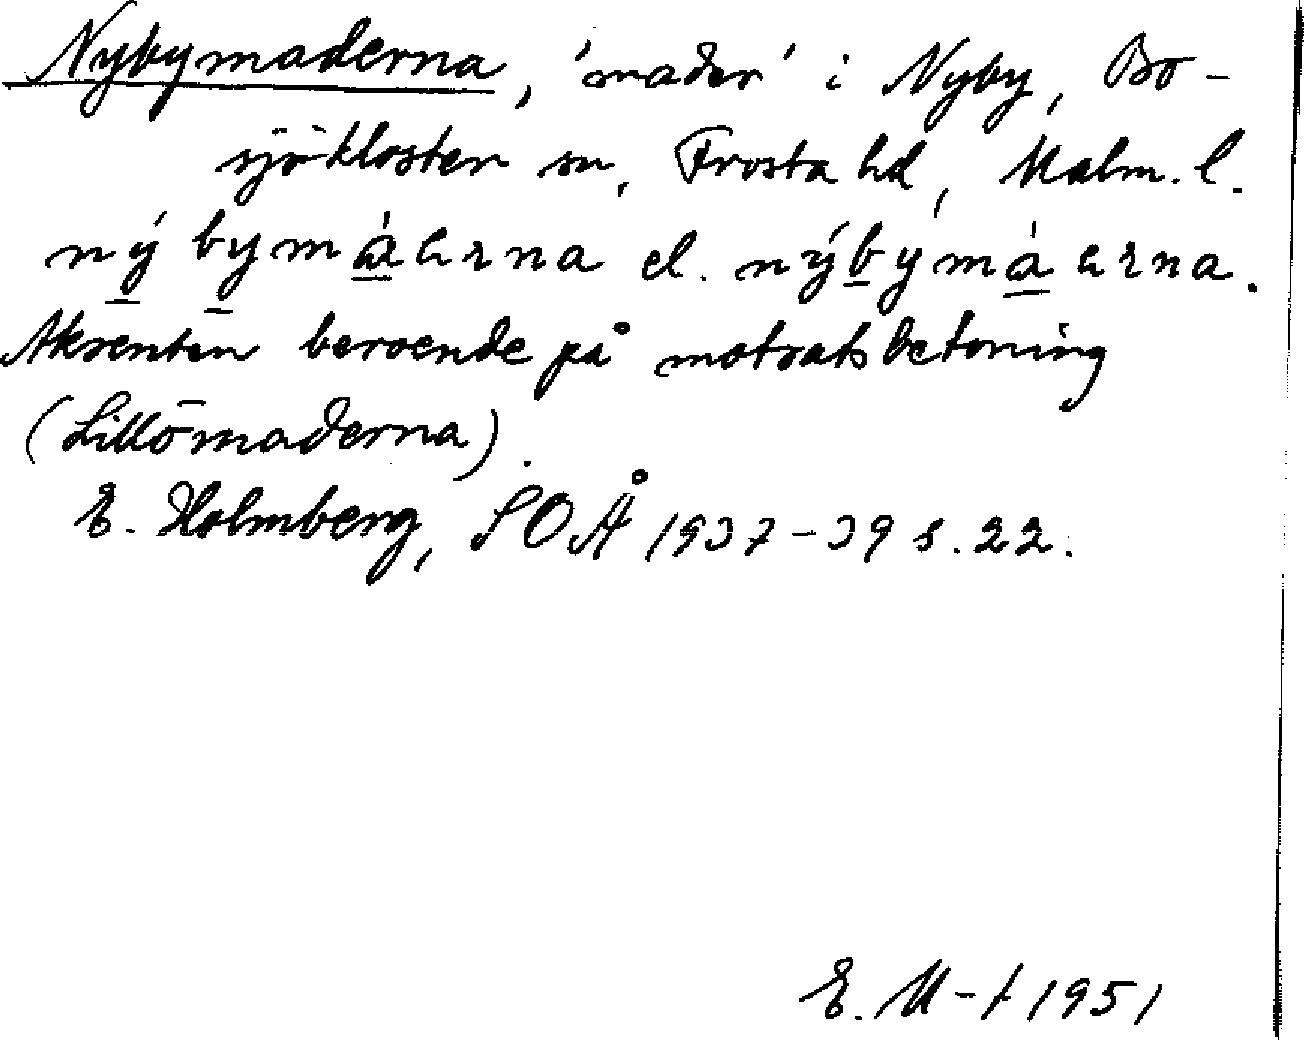 Nybymaderna, 'mader' i Nyby, Bo-
sjökloster sn, Frosta hd, Malm. l.
el.
Aksenten beroende på motsatsbetoning
(Lillömaderna).
E. Holmberg, SOÅ 1937-39 s. 22.
E. M-t 1951